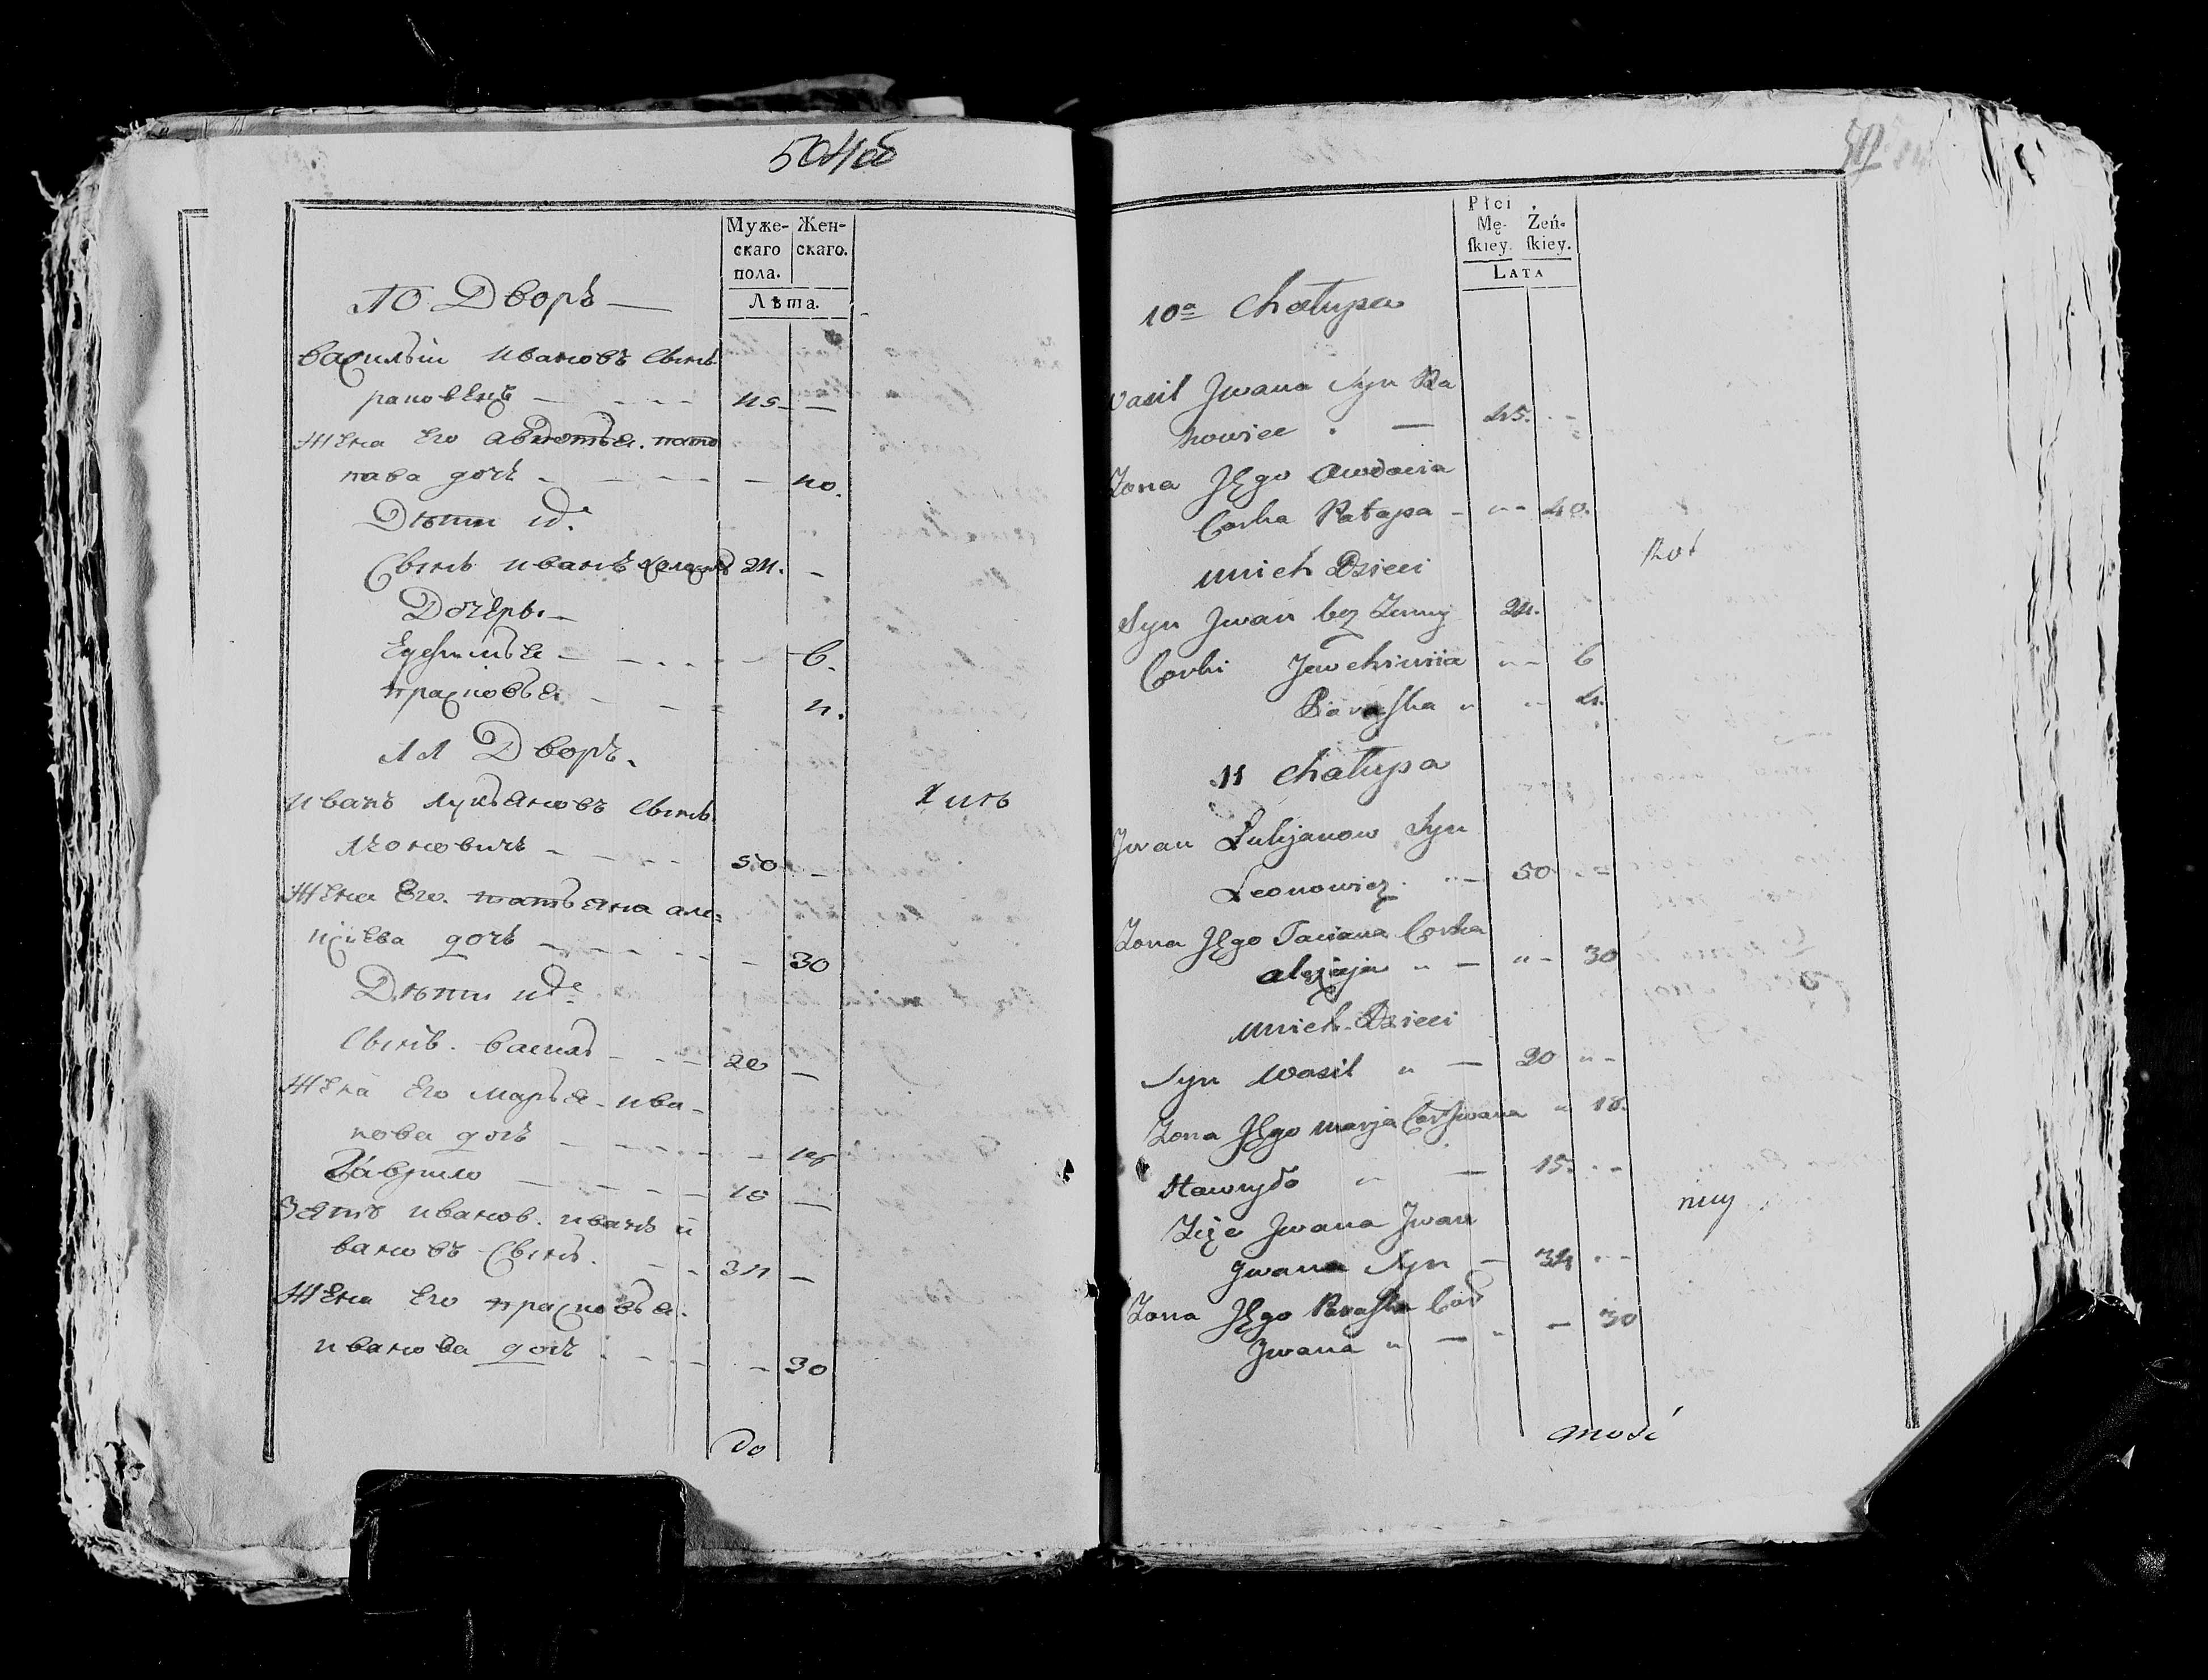 504об
Муже-
скаго
пола.
Жен-
скаго.
Лѣта.
10 Дворъ —
василый ивановъ сынъ
рановецъ — 45 —
жена его авдотья пота
пава дочь — — 40.
Дѣти их
сынъ иванъ холостъ 24. —
Дочерь. —
Ефимья — — 6.
прасковья — — 4.
11 Дворъ.
иванъ лукьяновъ сынъ
леоновичъ — 50 —
жена его татьяна але=
ксиева дочь — — 30
Дѣти их
сынъ василь — 20 —
жена его марья ива-
нова дочь — — 18
Гаврило — 15 —
зять иванов. иванъ и
вановъ сынъ. — 34 —
жена его прасковья.
иванова дочь — — 30
до
Płci
Mę-
ſkiey.
Żeń-
ſkiey.
LATA
10a Chałupa
Wasil Jwana Syn Ra
nowiec — 45. —
Żona Jego Awdocia
Corka Patapa — 40.
unich Dzieci
Syn Jwan bez Zony 24.
Corki Jewchimia — 6
Paraſka — 4.
11 Chałupa
Jwan Lukjanow Syn
Leonowicz — 50 —
Zona Jego Taciana Corka
alexieja — 30
unich Dzieci
Syn Wasil — 20 —
Zona Jego marja Cor Jwana 18.
Hawryło — 15. —
Zięć Jwana Jwan
Jwana Syn — 34 —
Zona Jego Paraſka Cor
Jwana — 30